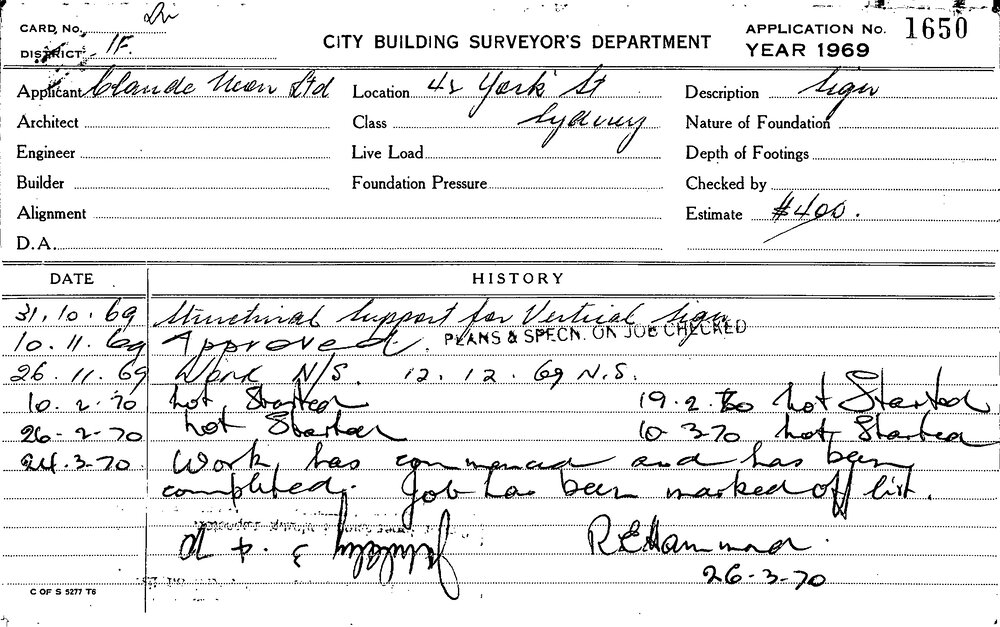 CARD, No.
DISTRICT 1F.
CITY BUILDING SURVEYOR'S DEPARTMENT
APPLICATION No. 1650
YEAR 1969
Applicant Claude Neon Ltd Location 42 York St Description Sign
Architect Class Sydney Nature of Foundation
Engineer Live Load Depth of Footings
Builder Foundation Pressure Checked by
Alignment Estimate $400.
D.A.
DATE HISTORY
31.10.69 Structural Support for Vertical Sign
10.11.69 Approved. PLANS & SPECN. ON JOB CHECKED
26.11.69 Work N/S. 12.12.69 N.S.
10.2.70 Not Started 19.2.70 Not Started
26-2-70 Not Started 10-3-70 Not Started
24.3-70. Work has commenced and has been
completed. Job has been marked off list.
3.4.70 R.E. Hammond.
26-3-70
C OF S 5277 T6